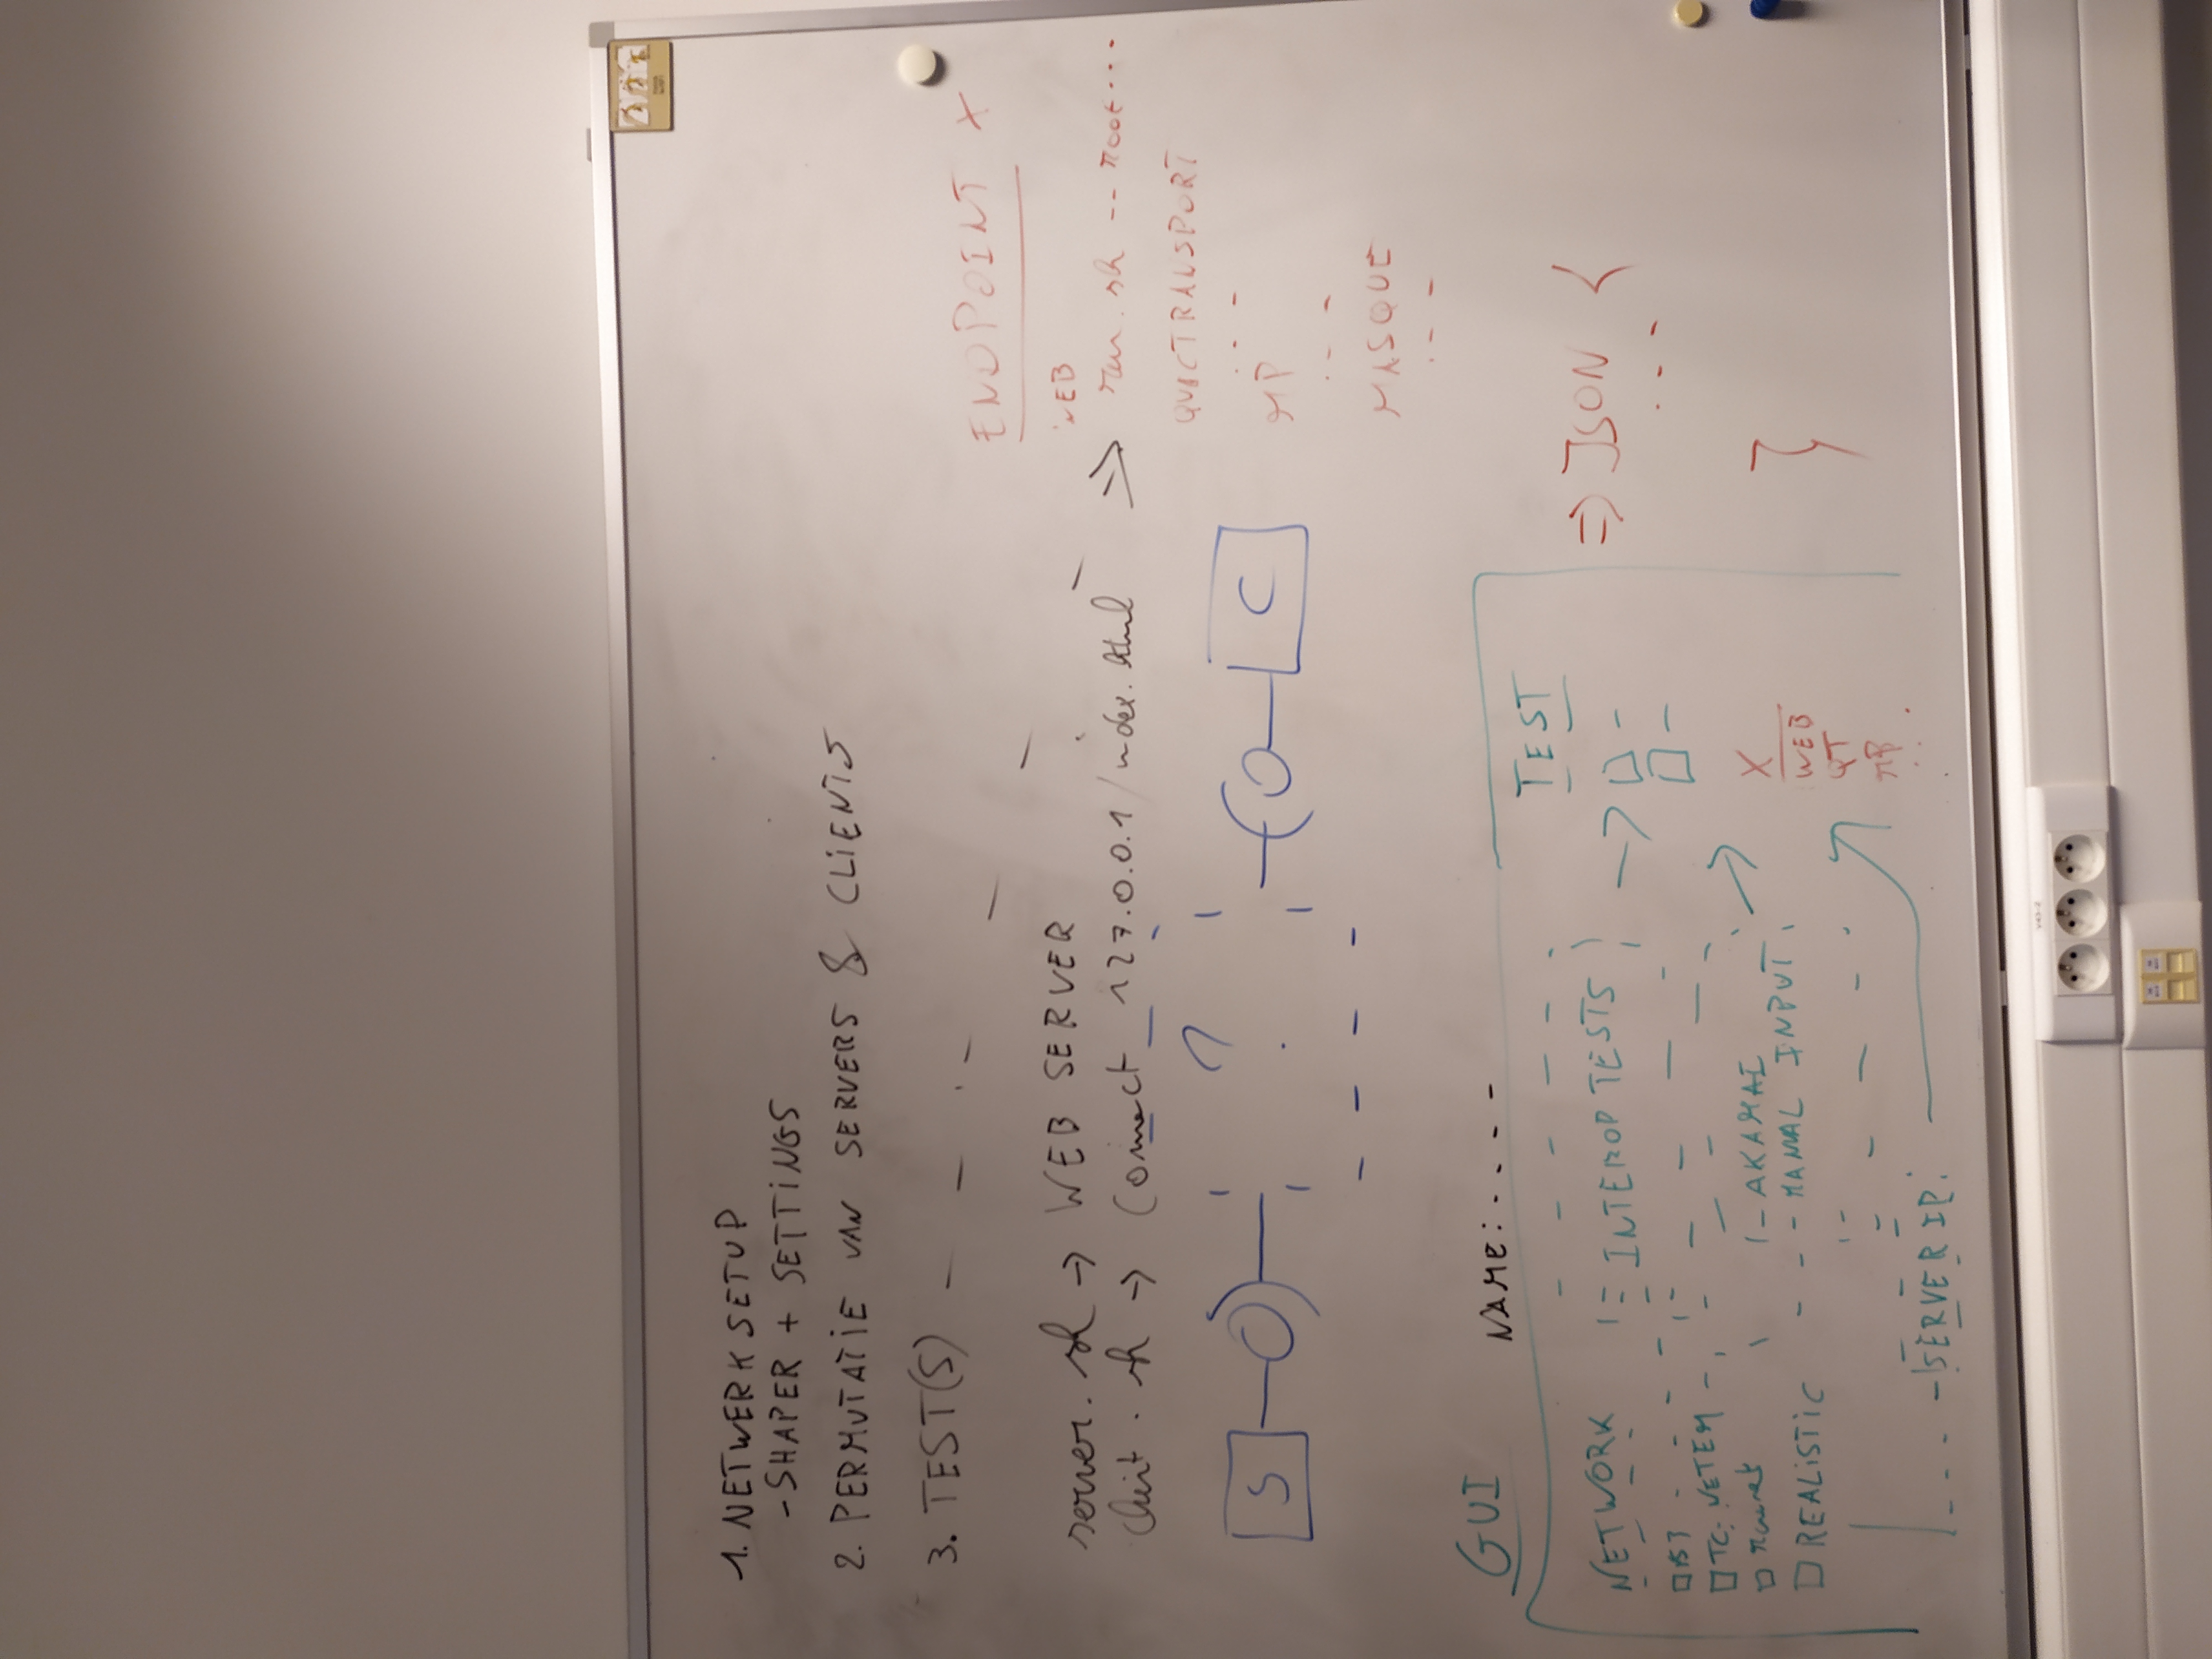 1. NETWERK SETUP
- SHAPER + SETTINGS
2. PERMUTATIE VAN SERVERS & CLIENTS
3. TEST(S)
server.sh → WEB SERVER
client.sh → Connect 127.0.0.1/index.html
⇒
ENDPOINT X
WEB
run.sh -- root...
QUICTRANSPORT
...
MP
...
MASQUE
...
S
?
C
GUI
NAME: ....
NETWORK
TC-NETEM
REALISTIC
INTEROP TESTS
- AKAMAI
- MANAL INPUT
- SERVER IP:
TEST
X
WEB
QT
MP
...
⇒ JSON {
...
}
V43-2